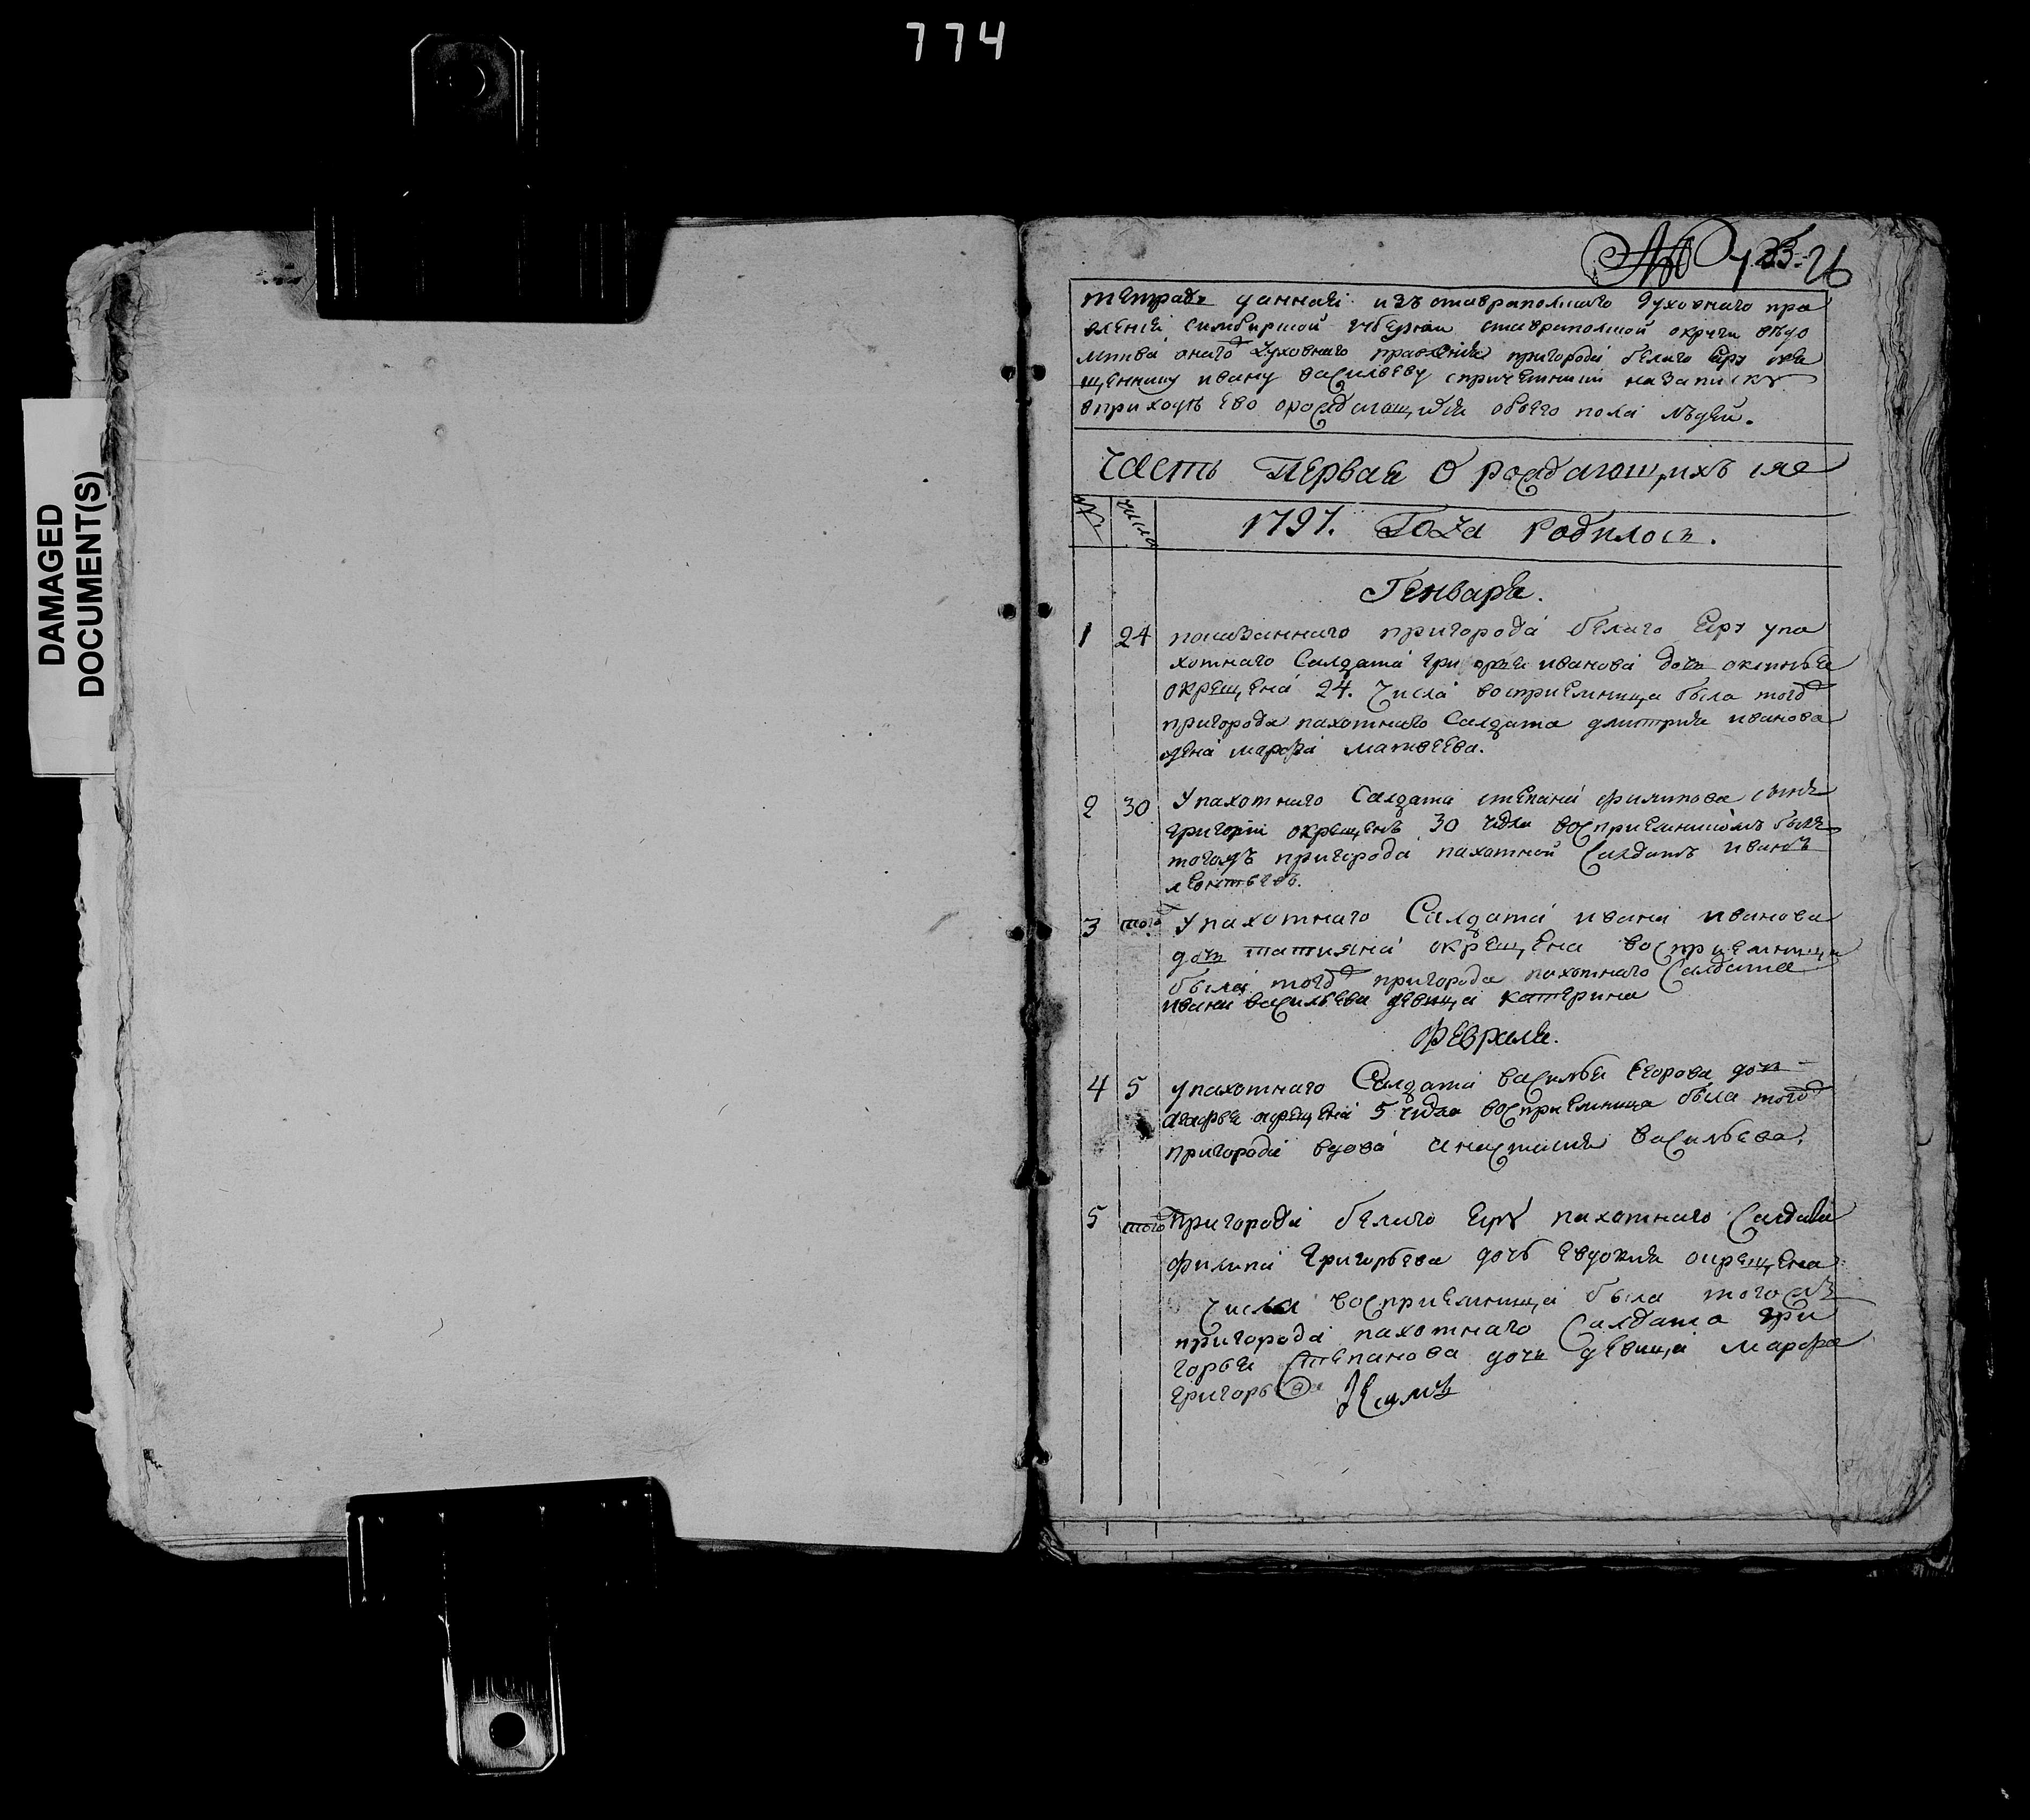 774
DAMAGED
DOCUMENT(S)
26
тетрадь данная изъ ставрополского духовнаго пра
вления симбирской губернии ставрополской округи ведо
мства онаго духовнаго правления пригорода белаго Яру свя
щеннику ивану васильеву спричетники на записку
вприходе ево ораждающихся обоего пола людей.
Часть Первая О раждающихъ ся
№ числа 1797. Года Родилось.
Генваря.
1 24 показаннаго пригорода белаго Яру упа
хотнаго Салдата григорья иванова дочь оксинья
окрещена 24. Числа восприемница была тогож
пригорода пахотнаго Салдата дмитрия иванова
жена марфа матвеева.
2 30 Упахотнаго Салдата степана филипова сынъ
григорий окрещенъ 30 числа восприемникомъ былъ
тогожъ пригорода пахотной Салдатъ иванъ
леонтьевъ.
3 тогож Упахотнаго Салдата ивана иванова
дочь татияна окрещена восприемница
была тогож пригорода пахотнаго Салдата
ивана васильева девица катерина
Февраля.
4 5 упахотнаго Салдата василья Егорова дочь
агафья окрещена 5 числа восприемница была тогож
пригорода вдова анастасия васильева.
5 тогож пригорода белаго Яру пахотнаго Салдата
филипа Григорьева дочь евдокия окрещена
Числа восприемница была тогожъ
пригорода пахотнаго Салдата гри
горья Степанова дочь девица марфа
григорьева